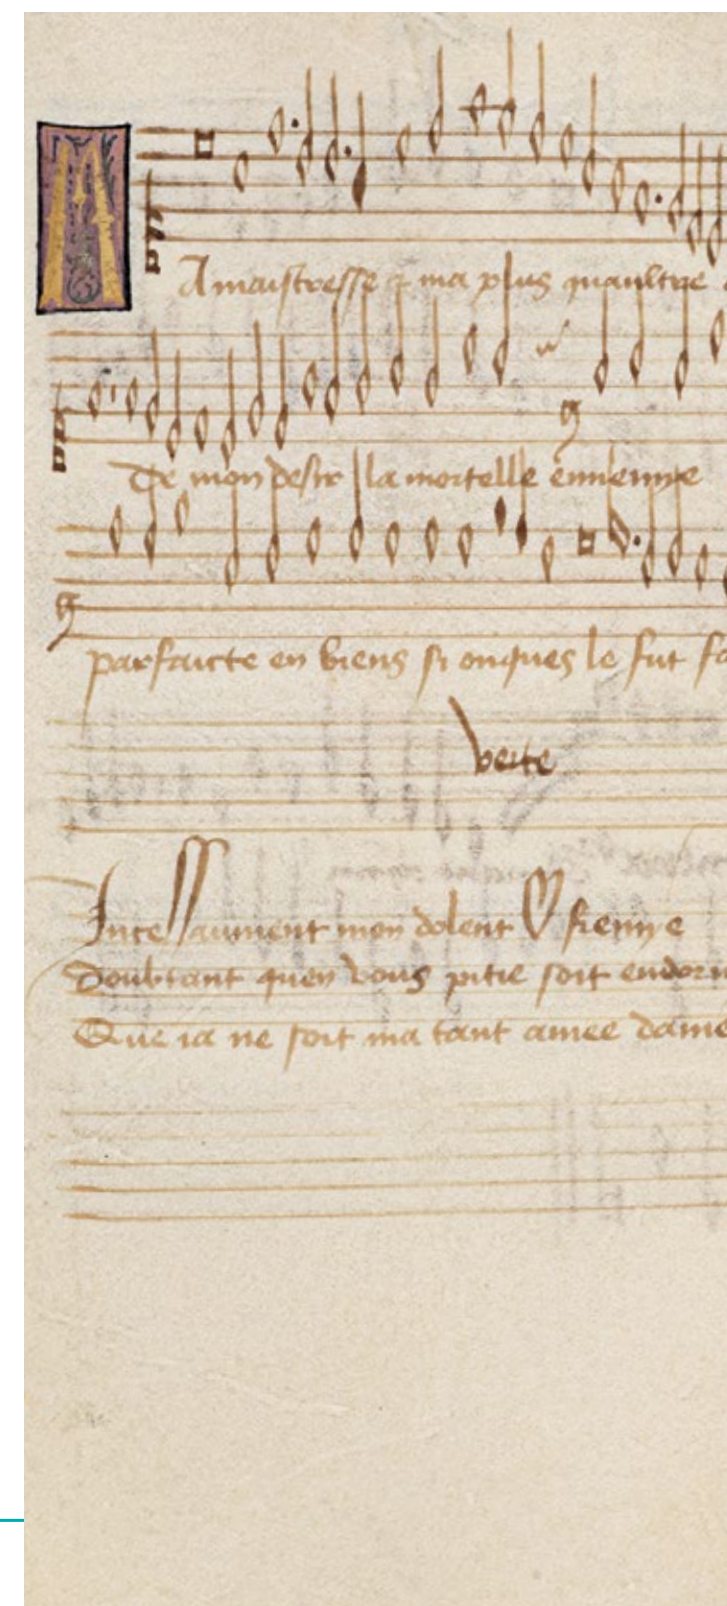 MA maistresse & ma plus quaultre
De mon desir la mortelle ennemye
parfaicte en biens si onques le fut
verte
Incessaument mon dolent
Doubtant quen vous pitie soit
Que ia ne soit ma tant amee dame